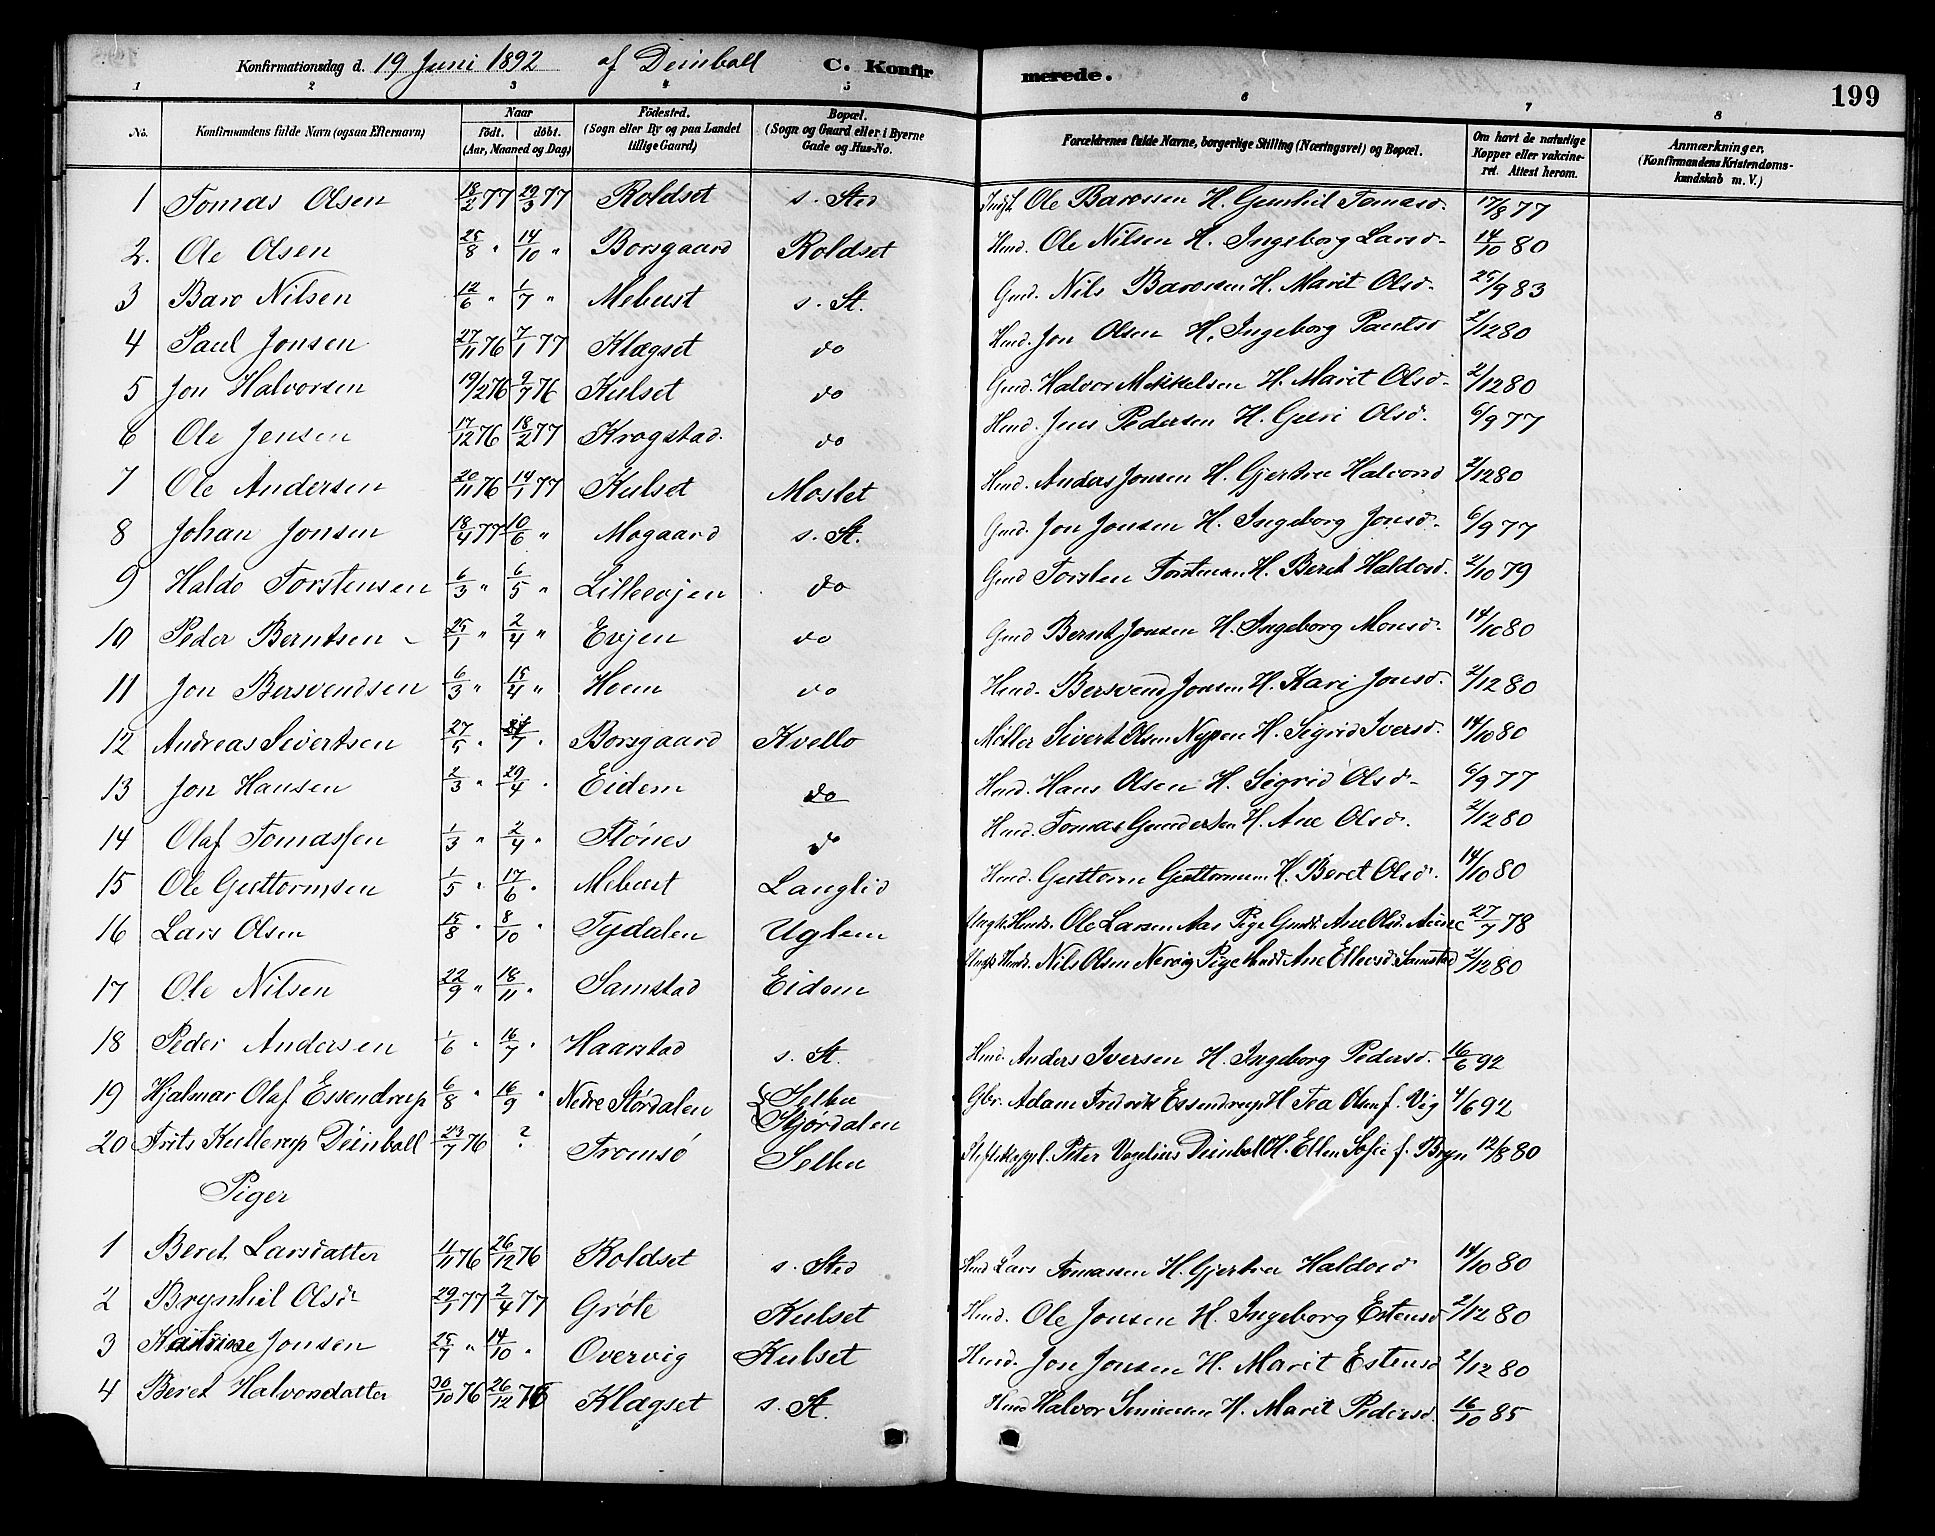 Konfirmationsdag d. 19 Juni 1892 af Deinboll C. Konfirmerede. 199
1 2 3 4 5 6 7 8
No. Konfirmandens fulde Navn (ogsaa Efternavn) Naar födt. döbt. (Aar, Maaned og Dag) Födested. (Sogn eller By og paa Landet tillige Gaard) Bopæl. (Sogn og Gaard eller i Byerne Gade og Hus-No. Forældrenes fulde Navne, borgerlige Stilling (Næringsvei) og Bopæl. Om havt de naturlige Kopper eller vakcineret. Attest herom. Anmærkninger. (Konfirmandens Kristendomskundskab m. V.)
1 Tomas Olsen 18/2 77 29/3 77 Roldset s. Sted Ole Barosen H. Gunhil Tomasd. 17/8 77
2. Ole Olsen 25/8 " 14/10 " Borsgaard Roldset Hmd. Ole Nilsen H. Ingeborg Larsd. 14/10 80
3 Baro Nilsen 12/6 " 1/7 " Mebust s. St. Gmd. Nils Barosen H. Marit Olsd. 25/9 83
4 Paul Jonsen 27/11 76 7/1 77 Klægset do Hmd. Jon Olsen H. Ingeborg Paulsd 2/12 80
5 Jon Halvorsen 19/2 76 9/7 76 Kulset do Gmd. Halvor Mikkelsen H. Marit Olsd. 2/12 80
6 Ole Jensen 17/12 76 18/2 77 Krogstad. do Hmd. Jens Pedersen H. Guri Olsd. 6/9 77
7 Ole Andersen 20/11 76 14/1 77 Kulset Moslet Hmd. Anders Jonsen H. Gjertru Halvorsd 2/12 80
8 Johan Jonsen 18/4 77 10/6 " Mogaard s. St. Gmd. Jon Jonsen H. Ingeborg Jonsd. 6/9 77
9 Haldo Torstensen 6/3 " 6/5 " Lilleevjen do Gmd Torsten Torstensen H. Beret Haldosd. 2/10 79
10 Peder Berntsen 25/1 " 2/4 " Evjen do Gmd Bernt Jonsen H. Ingeborg Monsd. 14/10 80
11 Jon Bersvendsen 6/3 " 15/4 " Hoem do Hmd. Bersvend Jonsen H. Kari Jonsd. 2/12 80
12 Andreas Sivertsen 27/5 " /7 " Borsgaard Kvello Möller Sivert Olsen Nypen H. Sigrid Iversd. 14/10 80
13 Jon Hansen 2/3 " 29/4 " Eidem do Hmd. Hans Olsen H. Sigrid Olsd. 6/9 77
14 Olaf Tomassen 1/3 " 2/4 " Stönes do Hmd. Tomas Gundersen H. Ane Olsd. 2/12 80
15 Ole Guttormsen 1/5 " 17/6 " Mebust Langlid Hmd. Guttorm Guttormsen H. Beret Olsd. 14/10 80
16 Lars Olsen 15/8 " 8/10 " Tydalen Uglem Ungk. Hmds. Ole Larsen Aas Pige Ane Olsd. 27/7 78
17 Ole Nilsen 22/9 " 18/11 " Samstad Eidem Ungk. Hmds. Nils Olsen Nervig Pige Ane Ellevsd. Samstad 2/12 80
18 Peder Andersen 1/6 " 16/7 " Haarstad s. St. Hmd. Anders Iversen H. Ingeborg Pedersd. 16/6 92
19 Hjalmar Olaf Essendrup 6/8 " 16/9 " Nedre Stördalen Selbu Stjördalen Gbr. Adam Fredrik Essendrup H. Tea Olsen f. Vig 4/6 92
20 Frits Kullerup Deinboll 23/7 76 ? Tromsö Selbu Stiftskapel. Peter Vogelius Deinboll H. Ellen Sofie f. Bryn 12/8 80
Piger
1 Beret Larsdatter 11/11 76 26/12 76 Roldset s. Sted Hmd Lars Tomassen H. Gjertru Haldosd 14/10 80
2 Brynhil Olsd 29/1 77 2/4 77 Gröte Kulset Hmd. Ole Jonsen H. Ingeborg Estensd 2/12 80
3 Katrine Jonsen 25/7 " 14/10 " Overvig Kulset Hmd. Jon Jonsen H. Marit Estensd 2/12 80
4 Beret Halvorsdatter 30/10 76 26/12 76 Klægset s. St. Hmd Halvor Simonsen H. Marit Pedersd. 16/10 85